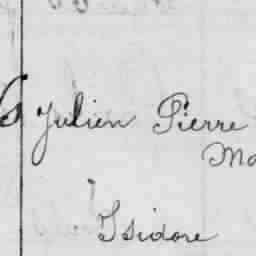 Julien Pierre
Isidore